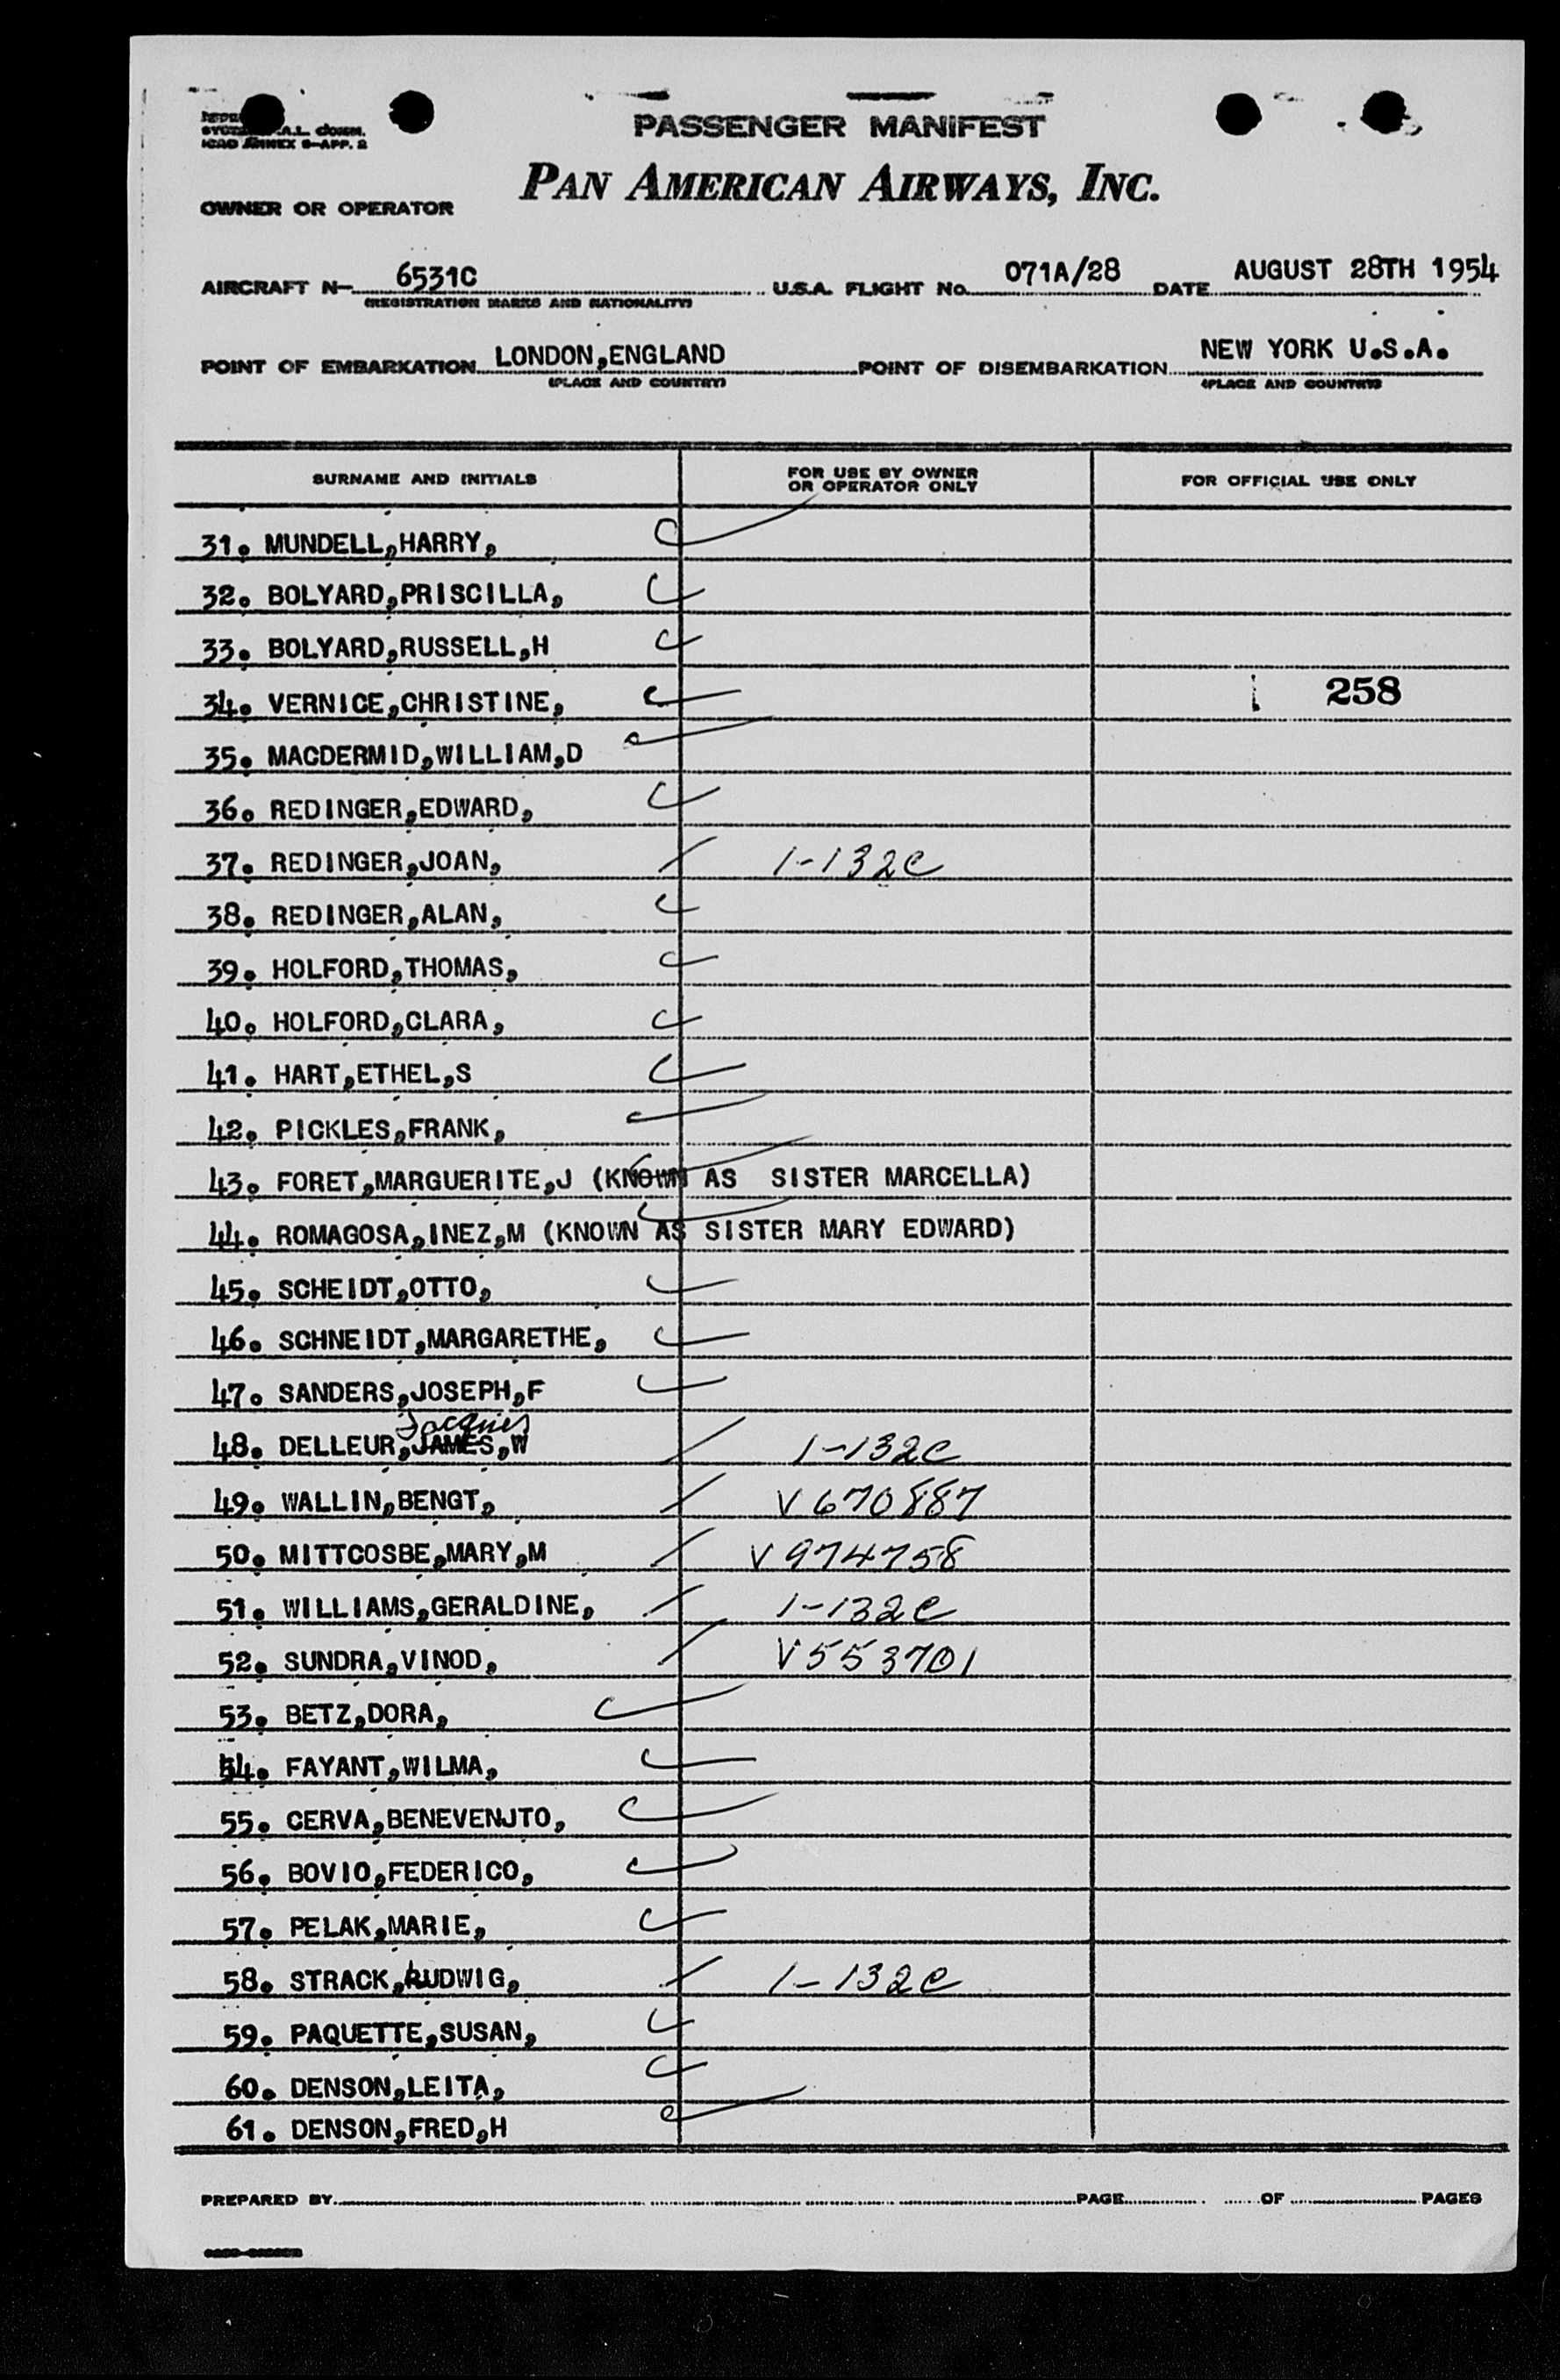 A.L. COMM.
ICAO ANNEX 9-APP. 2
PASSENGER MANIFEST
PAN AMERICAN AIRWAYS, INC.
OWNER OR OPERATOR
AIRCRAFT N- 6531C U.S.A. FLIGHT No. 071A/28 DATE AUGUST 28TH 1954
(REGISTRATION MARKS AND NATIONALITY)
POINT OF EMBARKATION LONDON,ENGLAND POINT OF DISEMBARKATION NEW YORK U.S.A.
(PLACE AND COUNTRY) (PLACE AND COUNTRY)
SURNAME AND INITIALS FOR USE BY OWNER OR OPERATOR ONLY FOR OFFICIAL USE ONLY
31. MUNDELL,HARRY,
32. BOLYARD,PRISCILLA,
33. BOLYARD,RUSSELL,H
34. VERNICE,CHRISTINE, 258
35. MACDERMID,WILLIAM,D
36. REDINGER,EDWARD,
37. REDINGER,JOAN, 1-132C
38. REDINGER,ALAN,
39. HOLFORD,THOMAS,
40. HOLFORD,CLARA,
41. HART,ETHEL,S
42. PICKLES,FRANK,
43. FORET,MARGUERITE,J (KNOWN AS SISTER MARCELLA)
44. ROMAGOSA,INEZ,M (KNOWN AS SISTER MARY EDWARD)
45. SCHEIDT,OTTO,
46. SCHNEIDT,MARGARETHE,
47. SANDERS,JOSEPH,F
Jacques
48. DELLEUR,JAMES,W 1-132C
49. WALLIN,BENGT, V670887
50. MITTCOSBE,MARY,M V974758
51. WILLIAMS,GERALDINE, 1-132C
52. SUNDRA,VINOD, V553701
53. BETZ,DORA,
54. FAYANT,WILMA,
55. CERVA,BENEVENJTO,
56. BOVIO,FEDERICO,
57. PELAK,MARIE,
58. STRACK,LUDWIG, 1-132C
59. PAQUETTE,SUSAN,
60. DENSON,LEITA,
61. DENSON,FRED,H
PREPARED BY PAGE OF PAGES